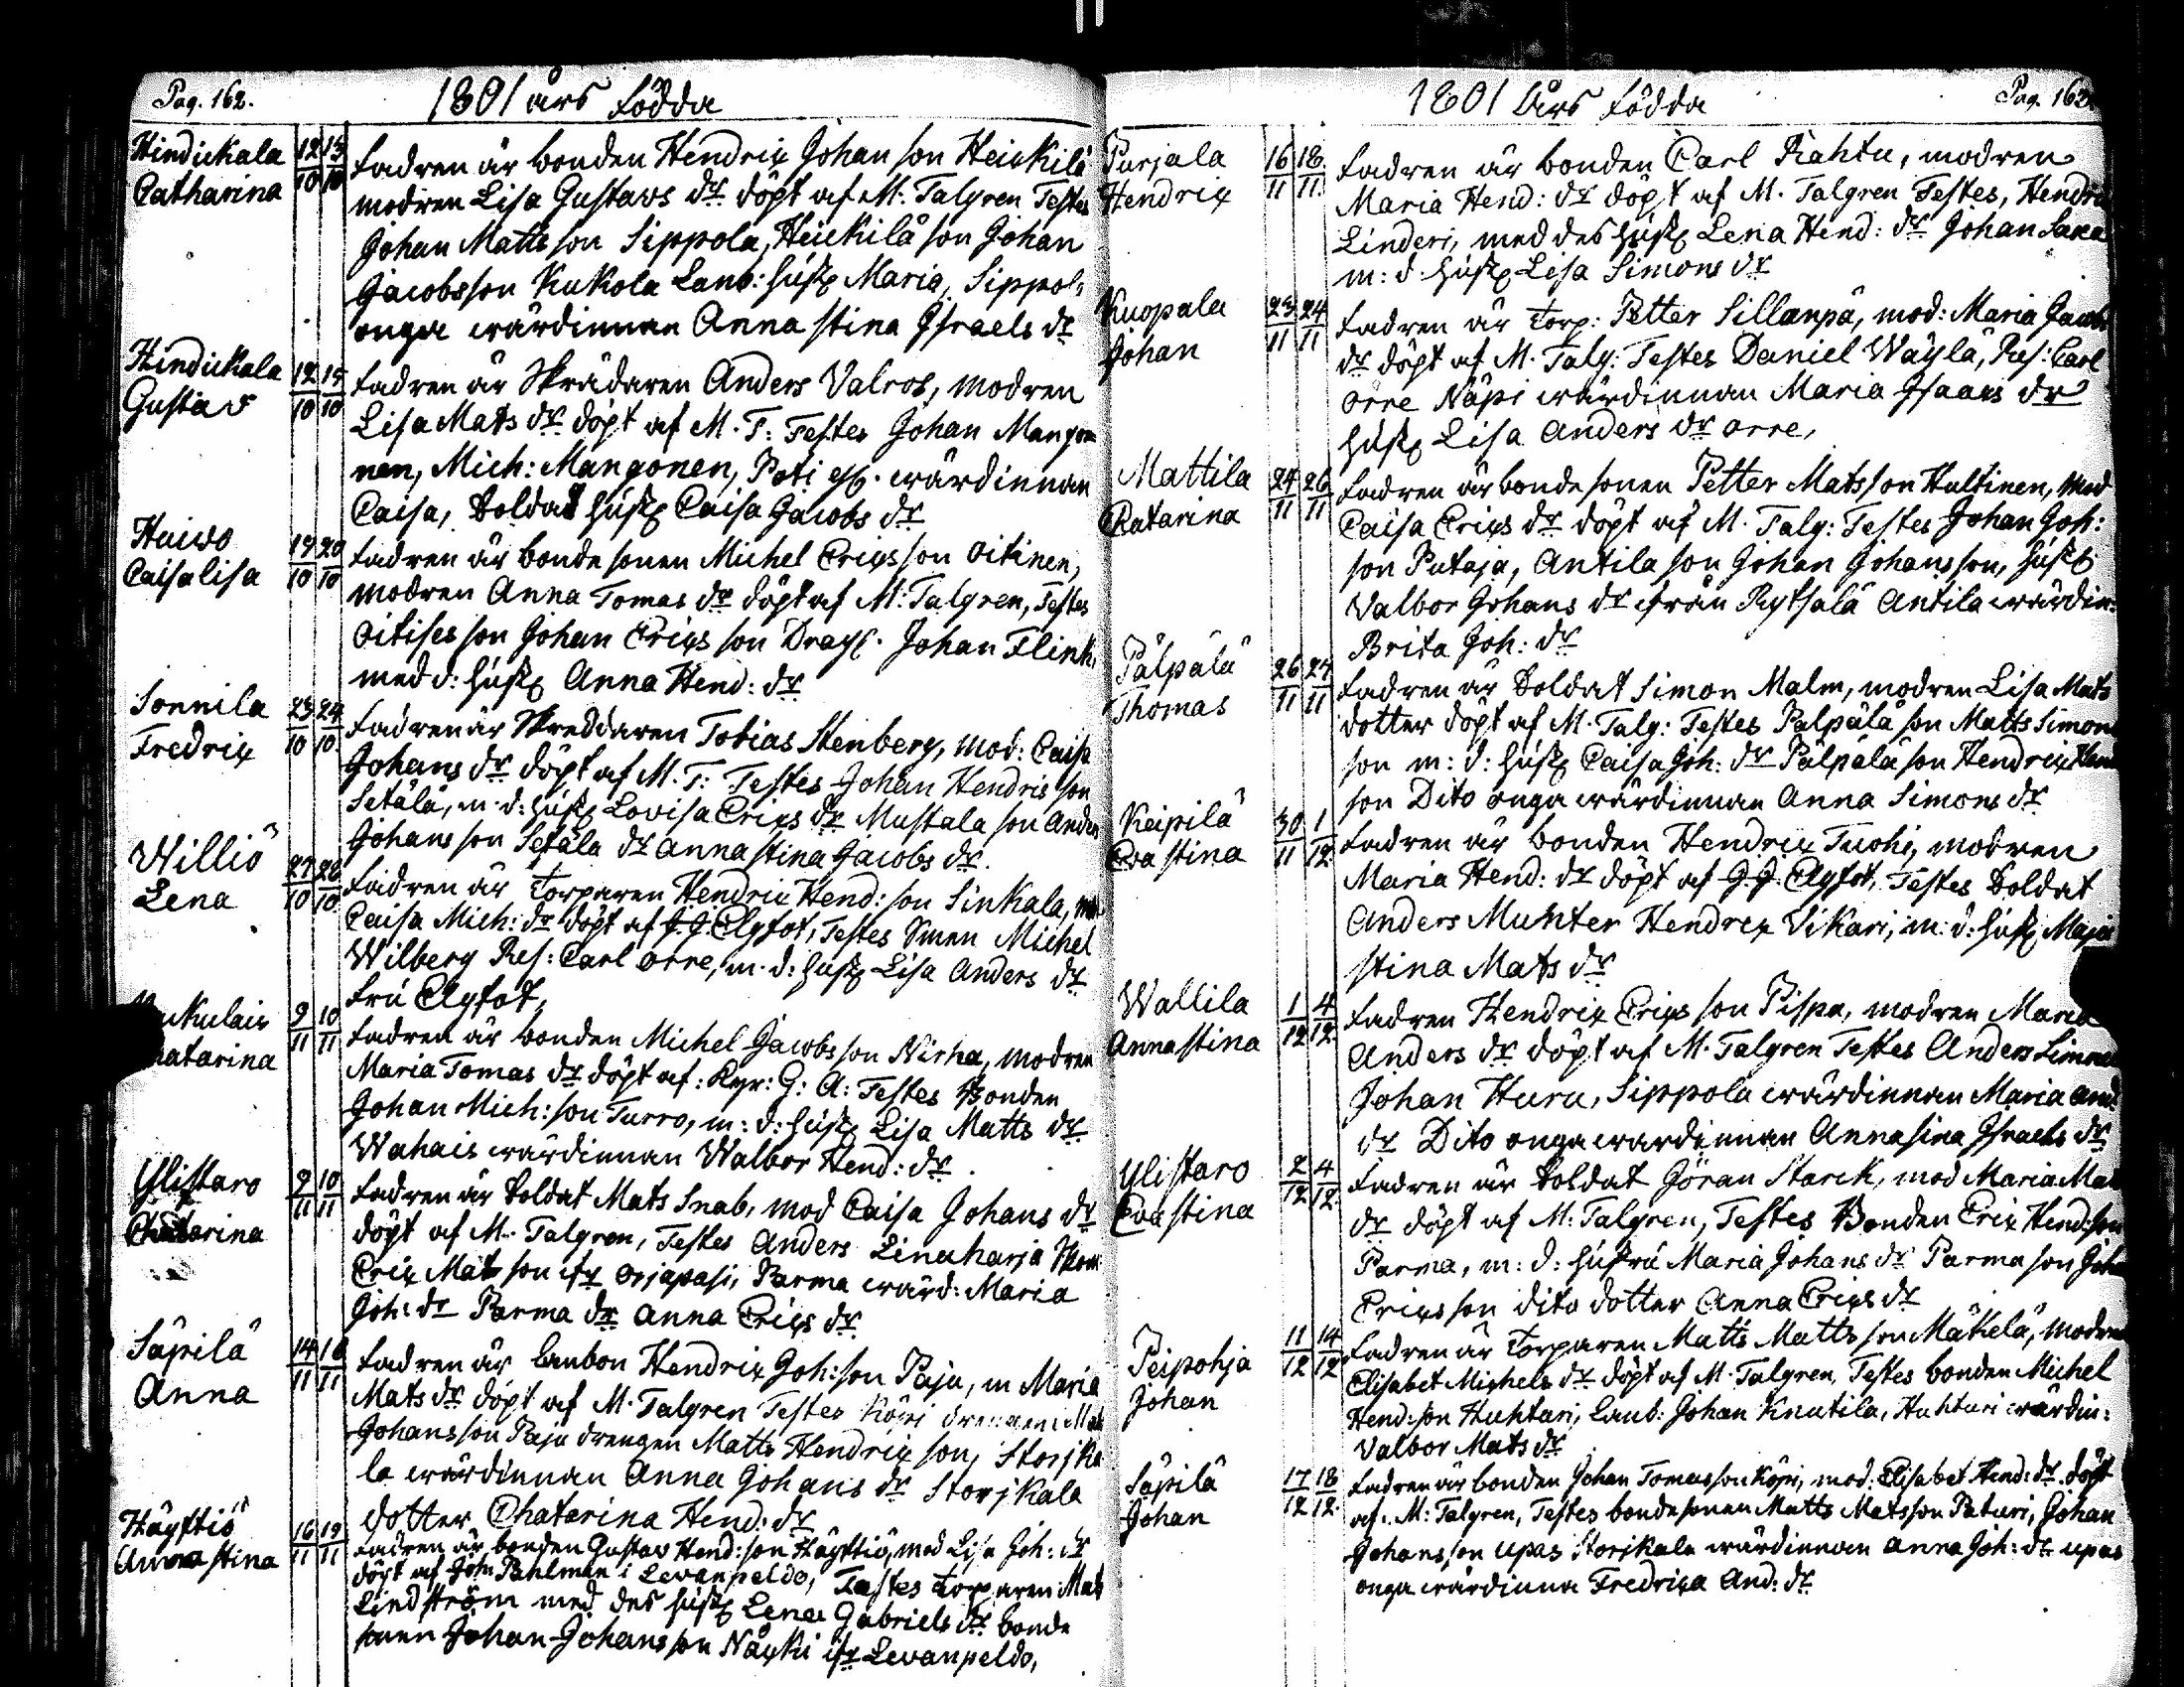 Pag. 162.
1801 års födda
Hindickala
Catharina
12/10 13/10
fadren är bonden Hendrix Johan son Heickilä
modren Lisa Gustavs dr döpt af M: Talgren Testes
Johan Matts son Sippola, Heickilä son Johan
Jacobsson Kukola Lanb: hust Maria, Sippol,
onga wärdinnan Anna stina Israels dr
Hindickala
Gustav
12/10 15/10
fadren är Skrädaren Anders Valros, modren
Lisa Mats dr döpt af M. T: Testes Johan Mango
nen, Mich: Mangonen, Poti wärdinnan
Caisa, Soldat hust Caisa Jacobs dr
Haiwo
Caisalisa
19/10 20/10
fadren är bonde sonen Michel Erixs son Oitinen,
modren Anna Tomas dr döpt af M: Talgren, Testes
Oitises son Johan Erixs son Drag. Johan Flink,
med d: hust Anna Hend: dr
Sonnila
Fredrix
23/10 24/10
fadren är Skreddaren Tobias Stenberg, mod: Caisa
Johans dr döpt af M. T: Testes Johan Hendris son
Setälä, m. d: hust Lovisa Erixs dr Mustala son Anders
Johans son Setäla dr Anna stina Jacobs dr.
Williö
Lena
27/10 28/10
fadren är Torparen Hendrix Hend: son Sinkala,
Caisa Mich: dr döpt af J. J. Elgfot, Testes Smen Michel
Wilberg Res: Carl Orre, m. d: hust Lisa Anders dr
fru Elgfot,
ukulais
atarina
9/11 10/11
fadren är bonden Michel Jacobs son Nirha, modren
Maria Tomas dr döpt af: Kyr: G: A: Testes Bonden
Johan Mich: son Turro, m: d: hust Lisa Matts dr
Wahais wärdinnan Walbor Hend: dr.
Ylistaro
Chatarina
9/11 10/11
fadren är Soldat Mats Snab, mod Caisa Johans dr
döpt af M. Talgren, Testes Anders Linaharja
Erix Mats son ifr Orjapasi, Parma wärd: Maria
Joh: dr Parma dr Anna Erixs dr
Säpilä
Anna
14/11 18/11
fadren är lanbon Hendrix Joh: son Paju, m Maria
Mats dr döpt af M. Talgren Testes Köpi drengen Mats
Johansson Paju drengen Matts Hendrix son, Storjka
la wärdinnan Anna Johans dr Storjkala
dotter Chatarina Hend: dr
Häyftiö
Anna stina
16/11 19/11
fadren är bonden Gustav Hend: son Häyftiö, mod Lisa Joh: dr
döpt af Joh: Pahlman i Levanpeldo, Testes Torparen Mats
Lindström med des hust Lena Gabriels dr bonde
sonen Johan Johans son Näyki ifr Levanpeldo,
1801 års födda
Pag. 163
Purjala
Hendrix
16/11 18/11
fadren är bonden Carl Rahtu, modren
Maria Hend: dr döpt af M. Talgren Testes, Hendri
Linderi, med des hust Lena Hend: dr Johan Saxa
m: d hust Lisa Simons dr
Kuopala
Johan
23/11 24/11
fadren är Torp: Petter Sillanpä, mod: Maria Jacobs
dr döpt af M. Talg: Testes Daniel Wäylä, Res: Carl
Orre Näpi wärdinnan Maria Isaacs dr
hust Lisa Anders dr Orre,
Mattila
Catarina
24/11 26/11
fadren är bonde sonen Petter Mats son Hultinen, Mod
Caisa Erixs dr döpt af M. Talg: Testes Johan Joh:
son Putaja, Antila son Johan Johans son, hust
Valbor Johans dr ifrån Rytsälä Antila wärdin:
Brita Joh: dr
Pälpälä
Thomas
26/11 27/11
fadren är Soldat Simon Malm, modren Lisa Mats
dotter döpt af M. Talg: Testes Palpälä son Matts Simon
son m: d: hust Caisa Joh: dr Pälpälä son Hendrix Hend
son Dito onga wärdinnan Anna Simons dr
Keipilä
Eva stina
30/11 1/12
fadren är bonden Hendrix Tuohi, modren
Maria Hend: dr döpt af J. J. Elgfot, Testes Soldat
Anders Munter Hendrix Vikari, m: d: hust Maja
stina Mats dr
Wallila
Anna stina
1/12 4/12
fadren Hendrix Erixs son Pispa, modren Maria
Anders dr döpt af M. Talgren Testes Anders Simne
Johan Huru, Sippola wärdinnan Maria And:
dr Dito onga wardinnan Annasina Israels dr
Ylistaro
Eva stina
2/12 4/12
fadren är Soldat Göran Starck, mod Maria Mat
dr döpt af M: Talgren, Testes Bonden Erix Hend: son
Parma, m: d: hustru Maria Johans dr Parma son Joha
Erixs son dito dotter Anna Erixs dr
Peipohja
Johan
11/12 14/12
fadren är Torparen Matts Matts son Mäkelä, modren
Elisabet Michels dr döpt af M. Talgren, Testes bonden Michel
Hend: son Huhtari, Lanb: Johan Knutila, Huhturi wärdin:
Valbor Mats dr
Säpilä
Johan
17/12 18/12
fadren är bonden Johan Tomas son Köpi, mod: Elisabet Hend: dr döpt
af. M: Talgren, Testes bonde sonen Matts Matsson Paturi, Johan
Johans son Upas Storjkala wärdinnan Anna Joh: dr Upas
onga wärdinna Fredrica And: dr